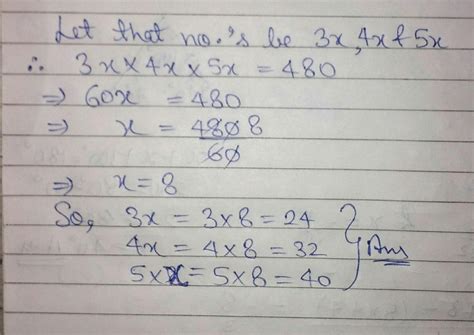 Let that no.'s be 3x, 4x & 5x
∴ 3x × 4x × 5x = 480
⇒ 60x = 480
⇒ x = 480 8
60
⇒ x = 8
So, 3x = 3×8 = 24
4x = 4×8 = 32
5×x = 5×8 = 40
Ans